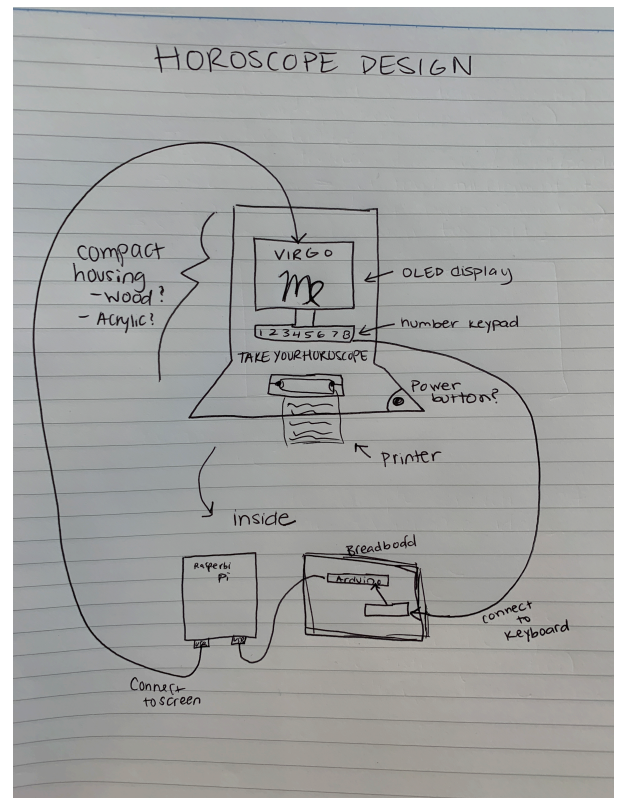 HOROSCOPE DESIGN
compact
housing
- Wood?
- Acrylic?
VIRGO
OLED display
1 2 3 4 5 6 7 8
number keypad
TAKE YOUR HOROSCOPE
Power
button?
printer
inside
Breadbodd
Rasperbi
Pi
Arduino
connect
to
keyboard
Connect
to screen